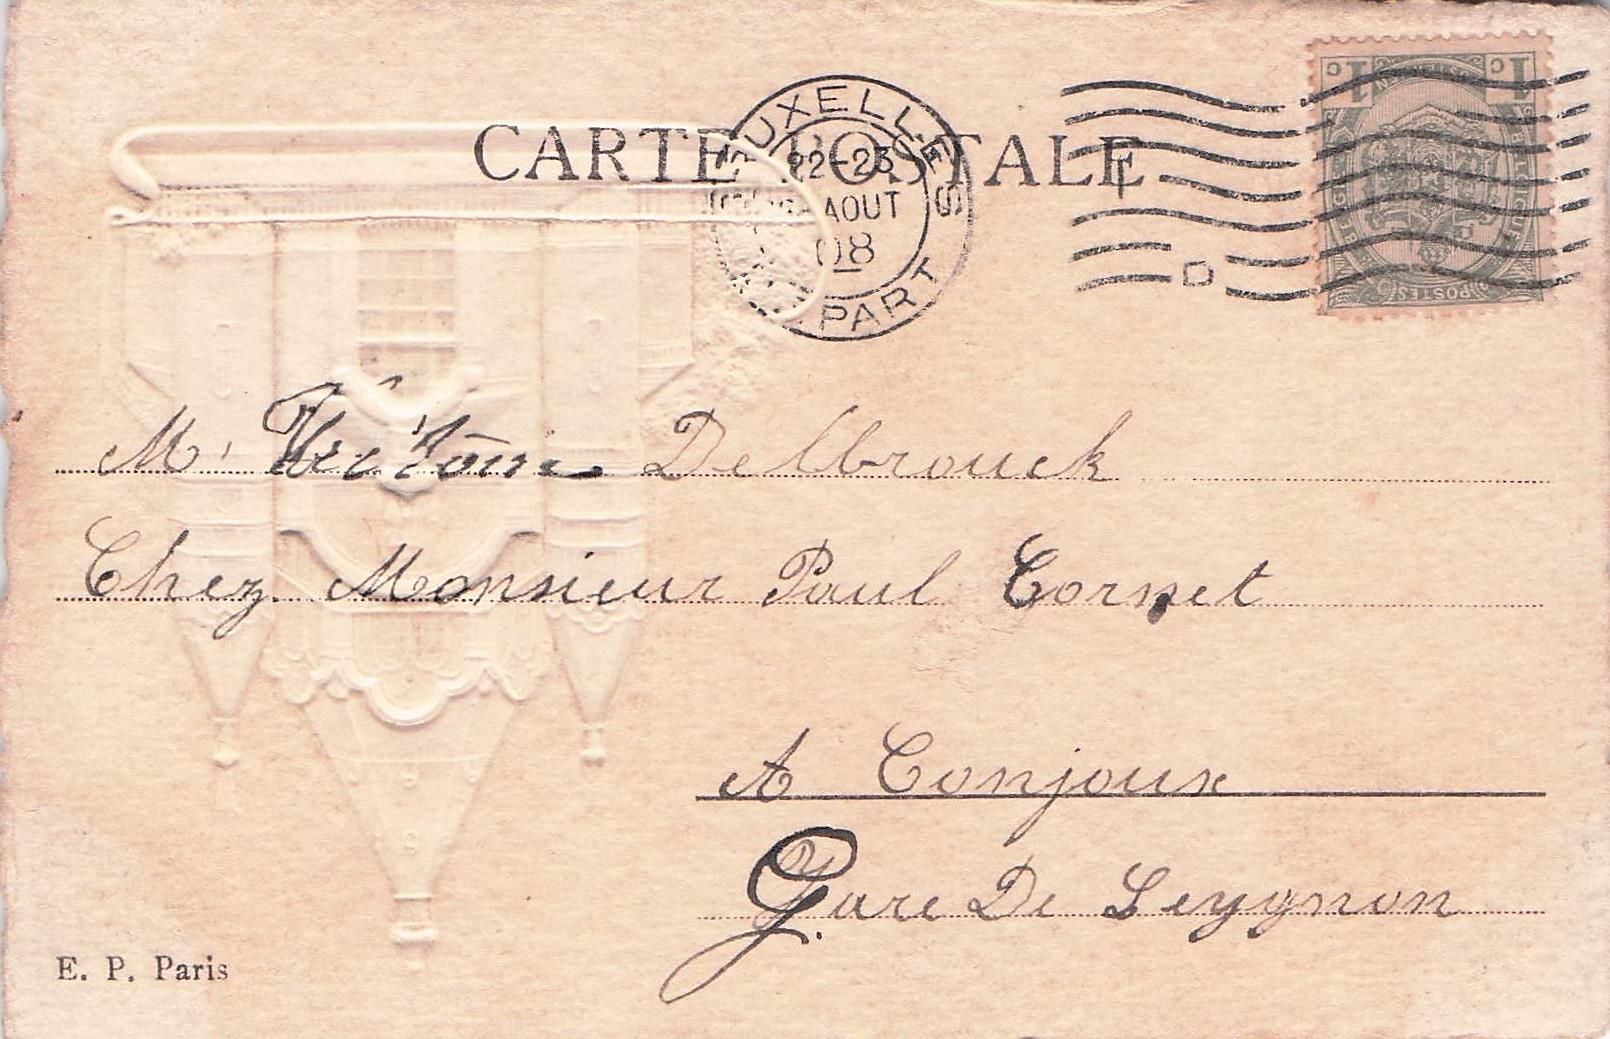 CARTE POSTALE
BRUXELLES
22-23
AOUT
08
DEPART
T
D
1c 1c
POSTES
M. Delbrouck
Chez Monsieur Paul Cornet
A Conjoux
Gare De Leygnon
E. P. Paris